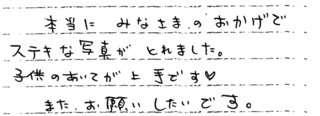 本当に みなさまのおかげで
ステキな写真が とれました。
子供のあいてが上手です♡
また、お願いしたいです。